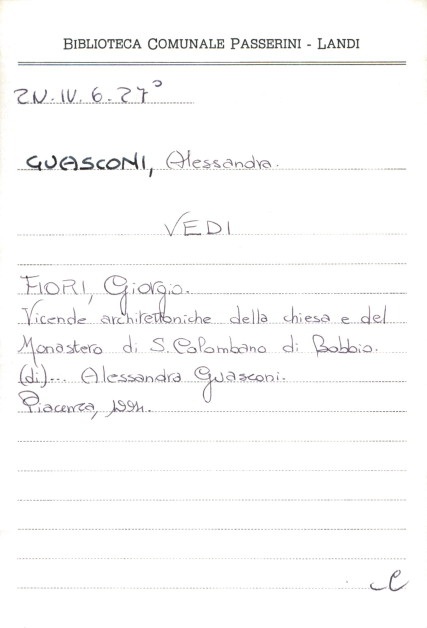 BIBLIOTECA COMUNALE PASSERINI - LANDI
2N.IV.6.27°
GUASCONI, Alessandra.
VEDI
FIORI, Giorgio.
Vicende architettoniche della chiesa e del
Monastero di S. Colombano di Bobbio.
(di)... Alessandra Guasconi.
Piacenza, 1994.